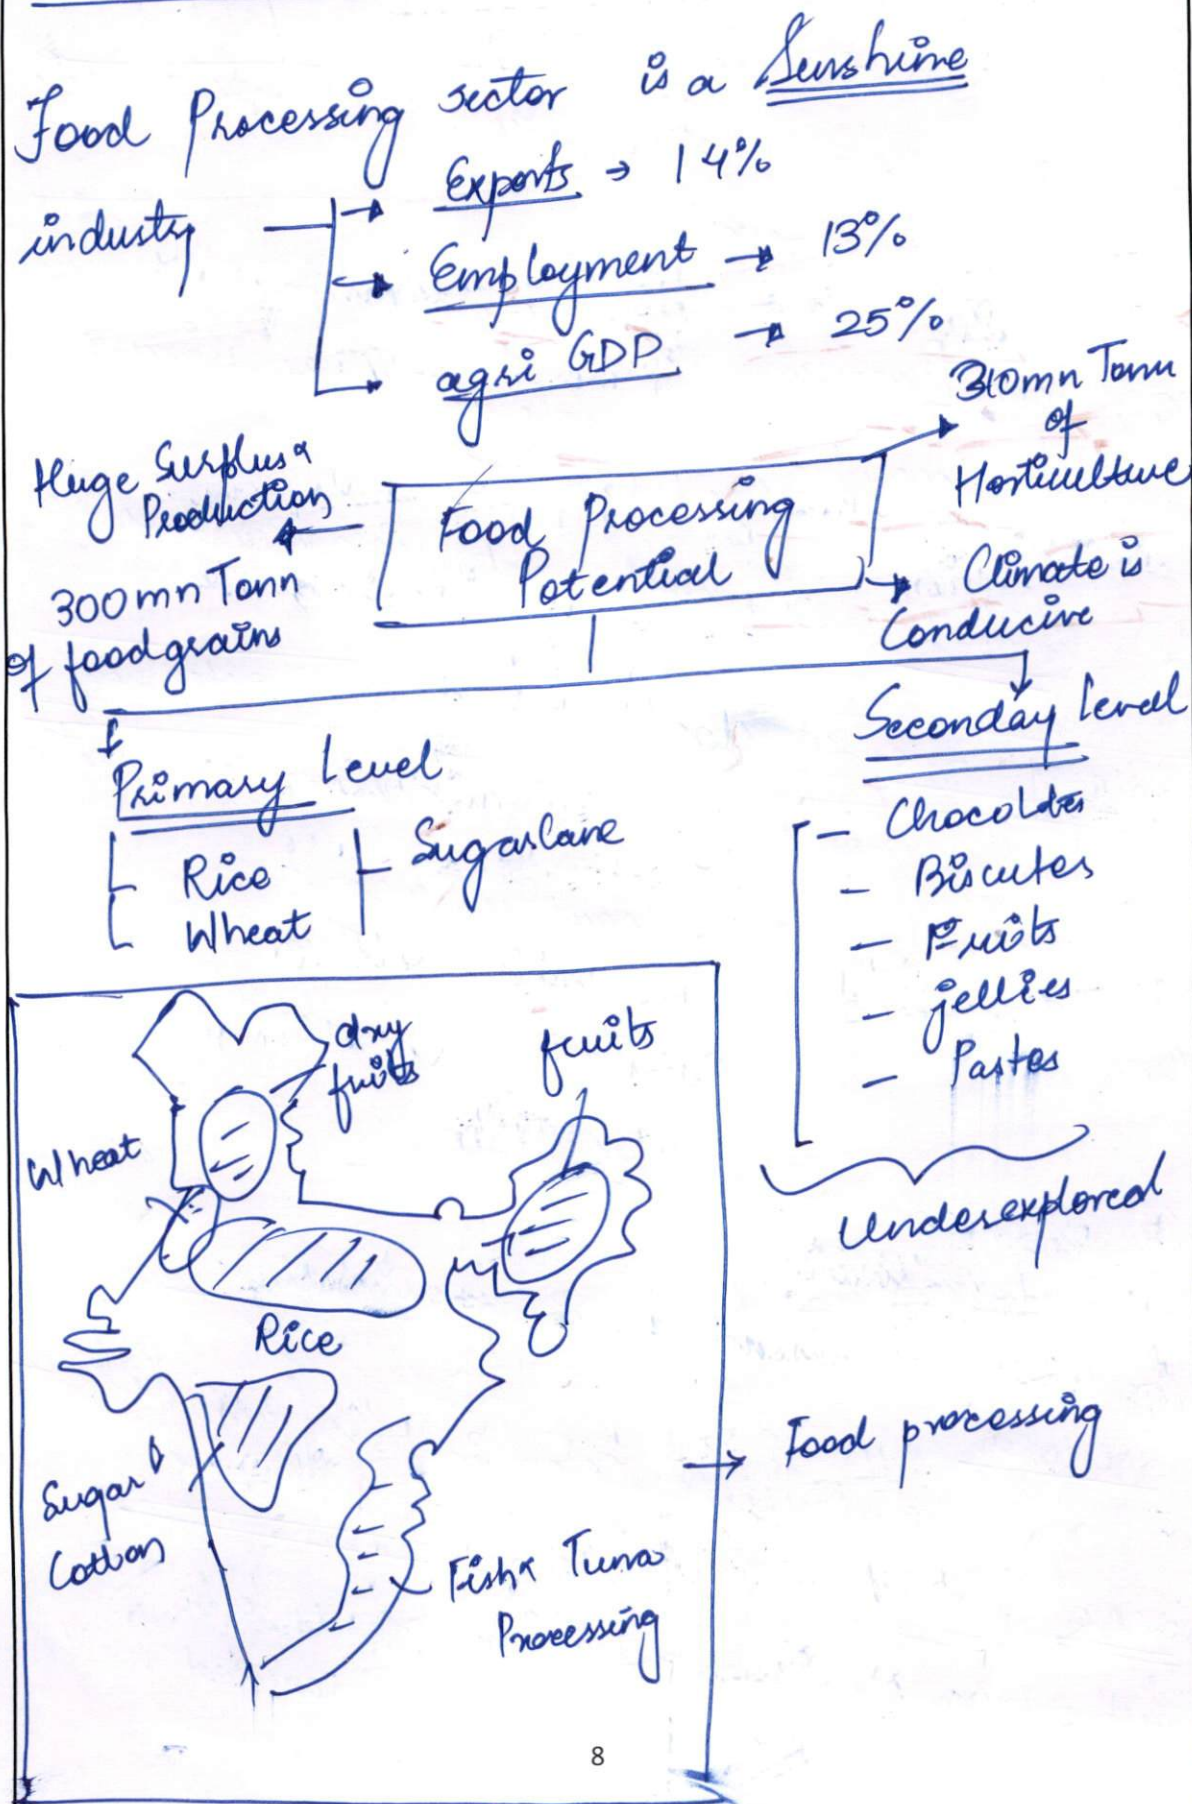 Food Processing sector is a Sunshine
industry
Exports → 14%
Employment → 13%
agri GDP → 25%
Huge Surplus &
Production
300 mn Tonn
of foodgrains
Food Processing
Potential
310mn Tonn
of
Horticulture
Climate is
Conducive
Primary Level
Rice
Wheat
Sugarcane
Seconday level
- Chocolates
- Biscutes
- Fruits
- jellies
- Pastes
Underexplored
dry
fruits
fruits
Wheat
Rice
Sugar &
Cotton
Fish & Tuna
Processing
→ Food processing
8